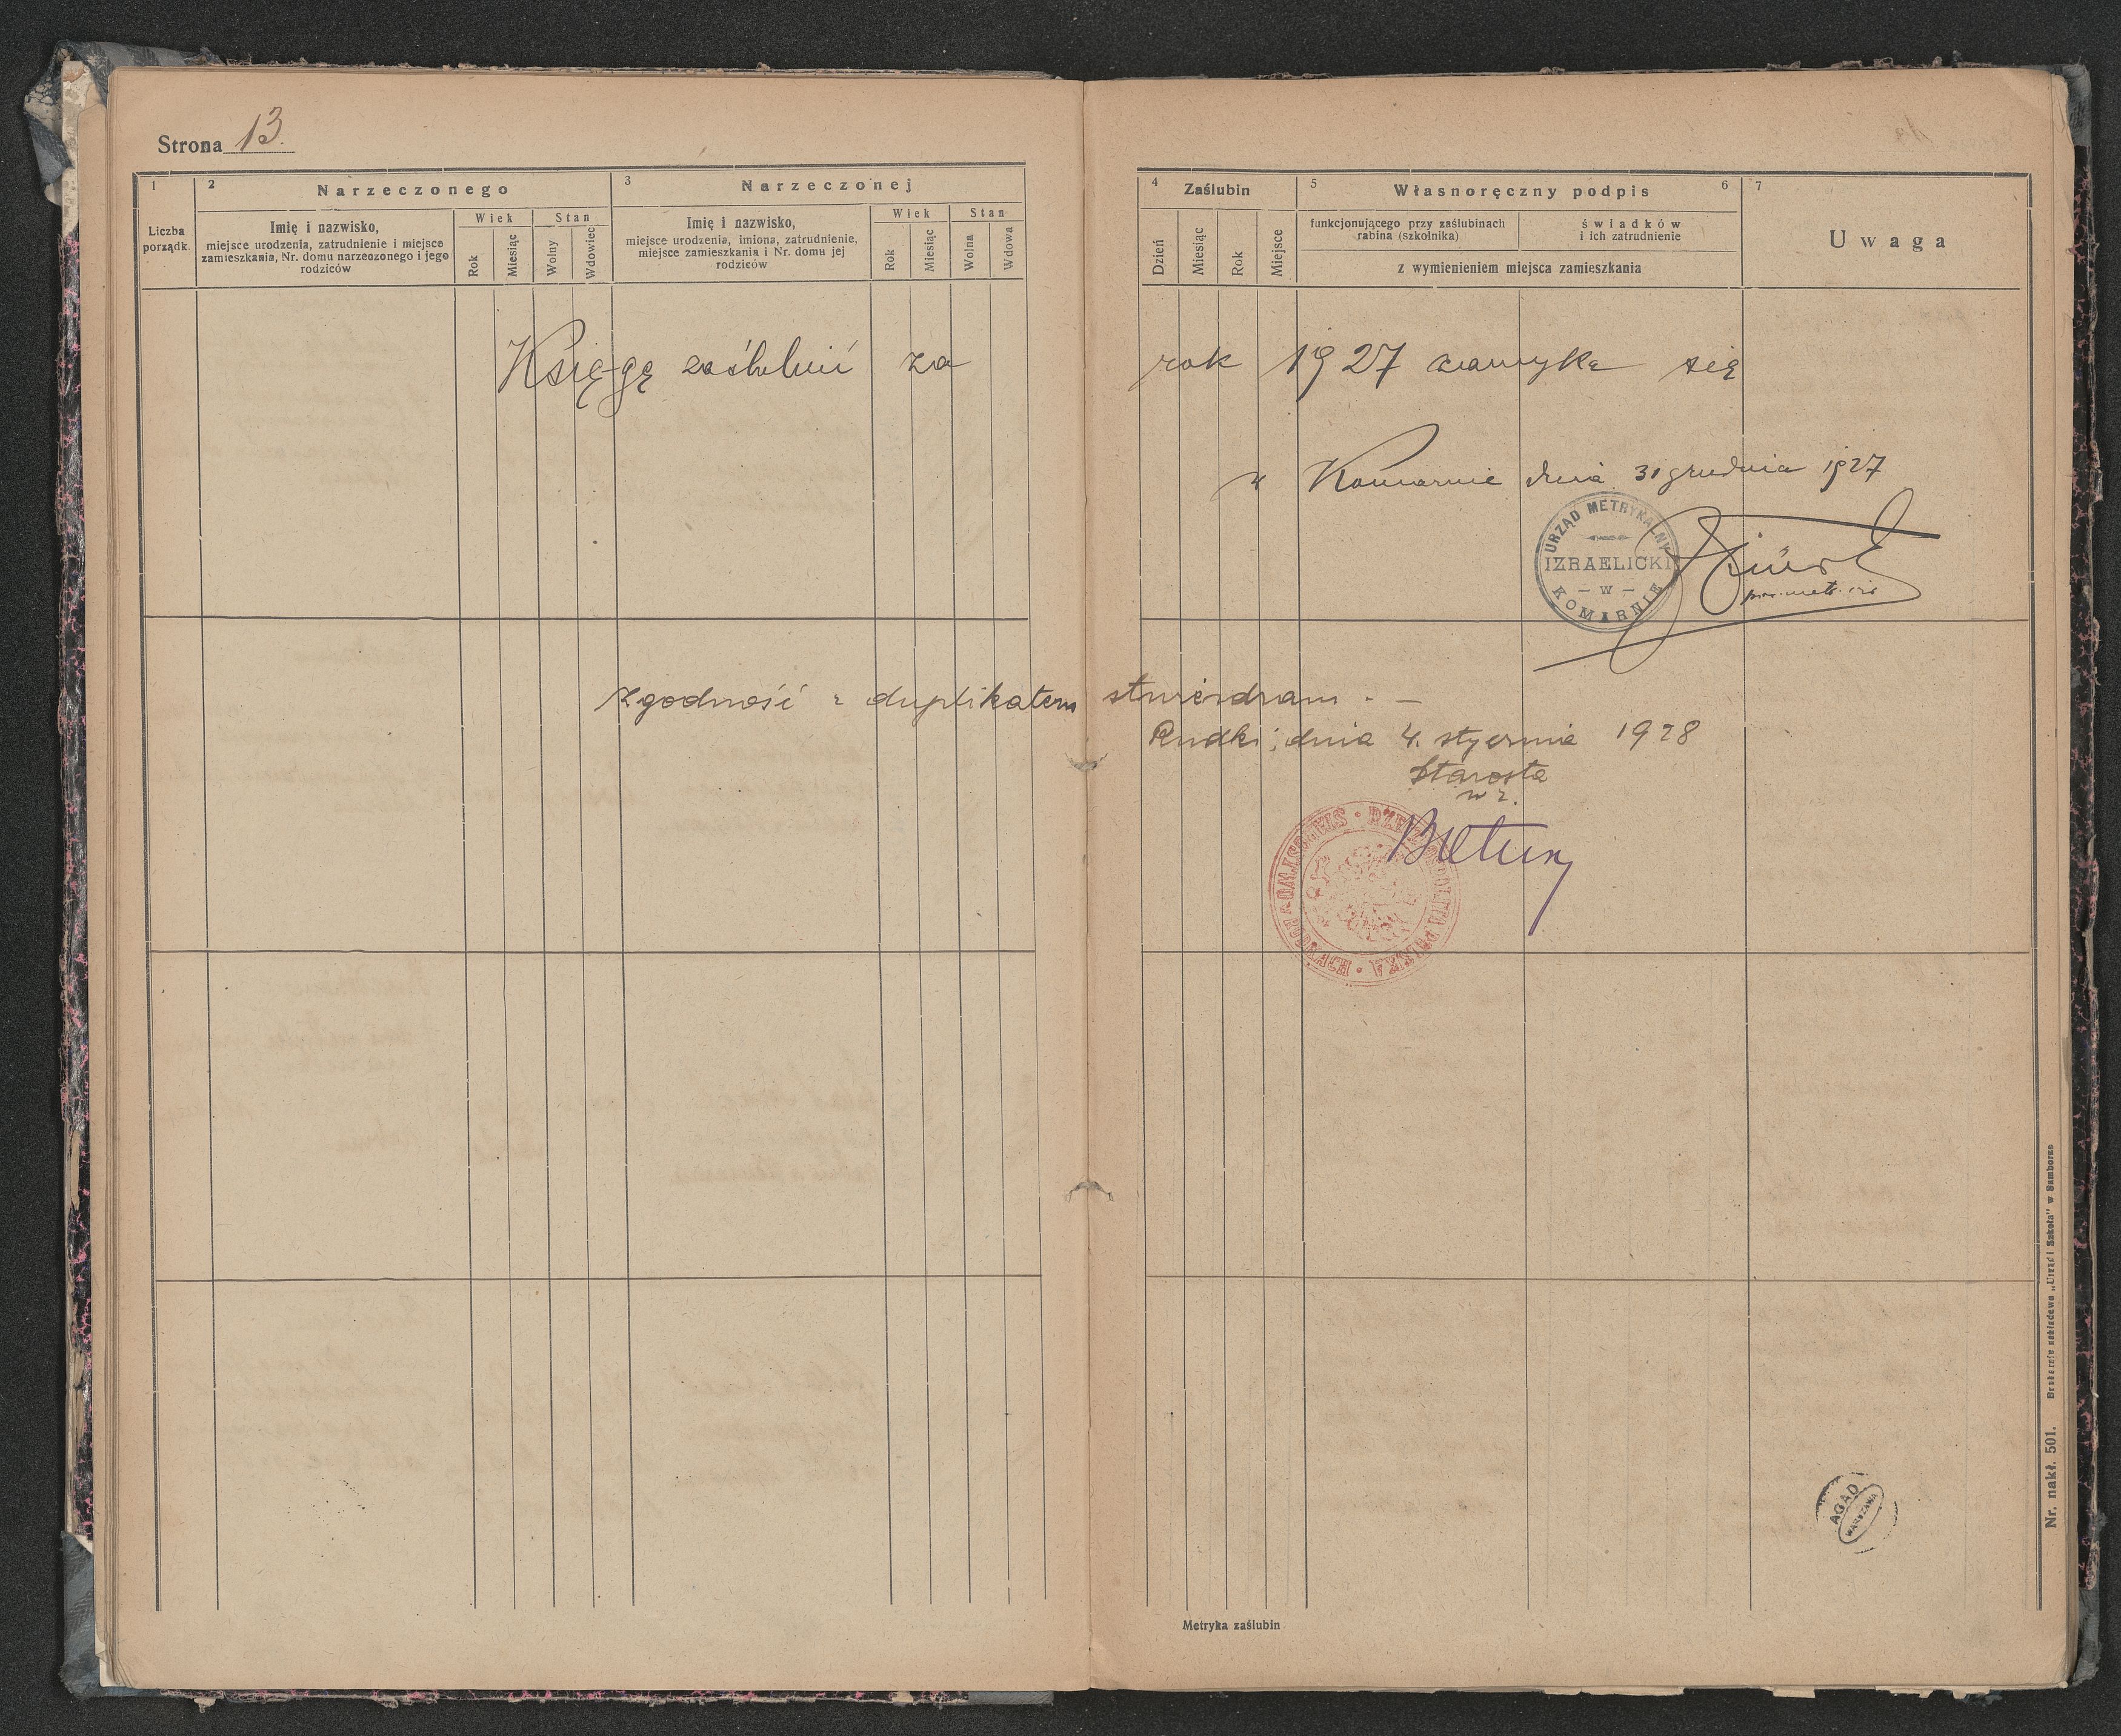 Strona 13.
1
2 Narzeczonego
3 Narzeczonej
Liczba porządk.
Imię i nazwisko,
miejsce urodzenia, zatrudnienie i miejsce
zamieszkania, Nr. domu narzeczonego i jego
rodziców
Wiek
Stan
Rok
Miesiąc
Wolny
Wdowiec
Imię i nazwisko,
miejsce urodzenia, imiona, zatrudnienie,
miejsce zamieszkania i Nr. domu jej
rodziców
Wiek
Stan
Rok
Miesiąc
Wolna
Wdowa
4 Zaślubin
5 Własnoręczny podpis 6
7
Dzień
Miesiąc
Rok
Miejsce
funkcjonującego przy zaślubinach
rabina (szkolnika)
świadków
i ich zatrudnienie
z wymienieniem miejsca zamieszkania
Uwaga
Księgę zaślubin za rok 1927 zamyka się
w Komarnie dnia 31 grudnia 1927
URZĄD METRYKALNY
IZRAELICKI
— W —
KOMARNIE
Zgodność z duplikatem stwierdzam. —
Rudki, dnia 4. stycznia 1928
Starosta
w z.
RZECZPOSPOLITA POLSKA
AGAD
WARSZAWA
Metryka zaślubin
Nr. nakł. 501. Drukarnia nakładowa „Urząd i Szkoła" w Samborze